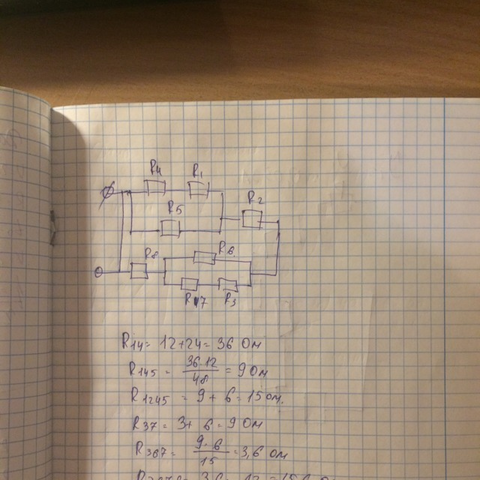 R4 R1
R2
R5
R8 R6
R7 R3
R14 = 12+24 = 36 Ом
R145 = 36·12/48 = 9 Ом
R1245 = 9 + 6 = 15 Ом.
R37 = 3 + 6 = 9 Ом
R367 = 9·6/15 = 3,6 Ом